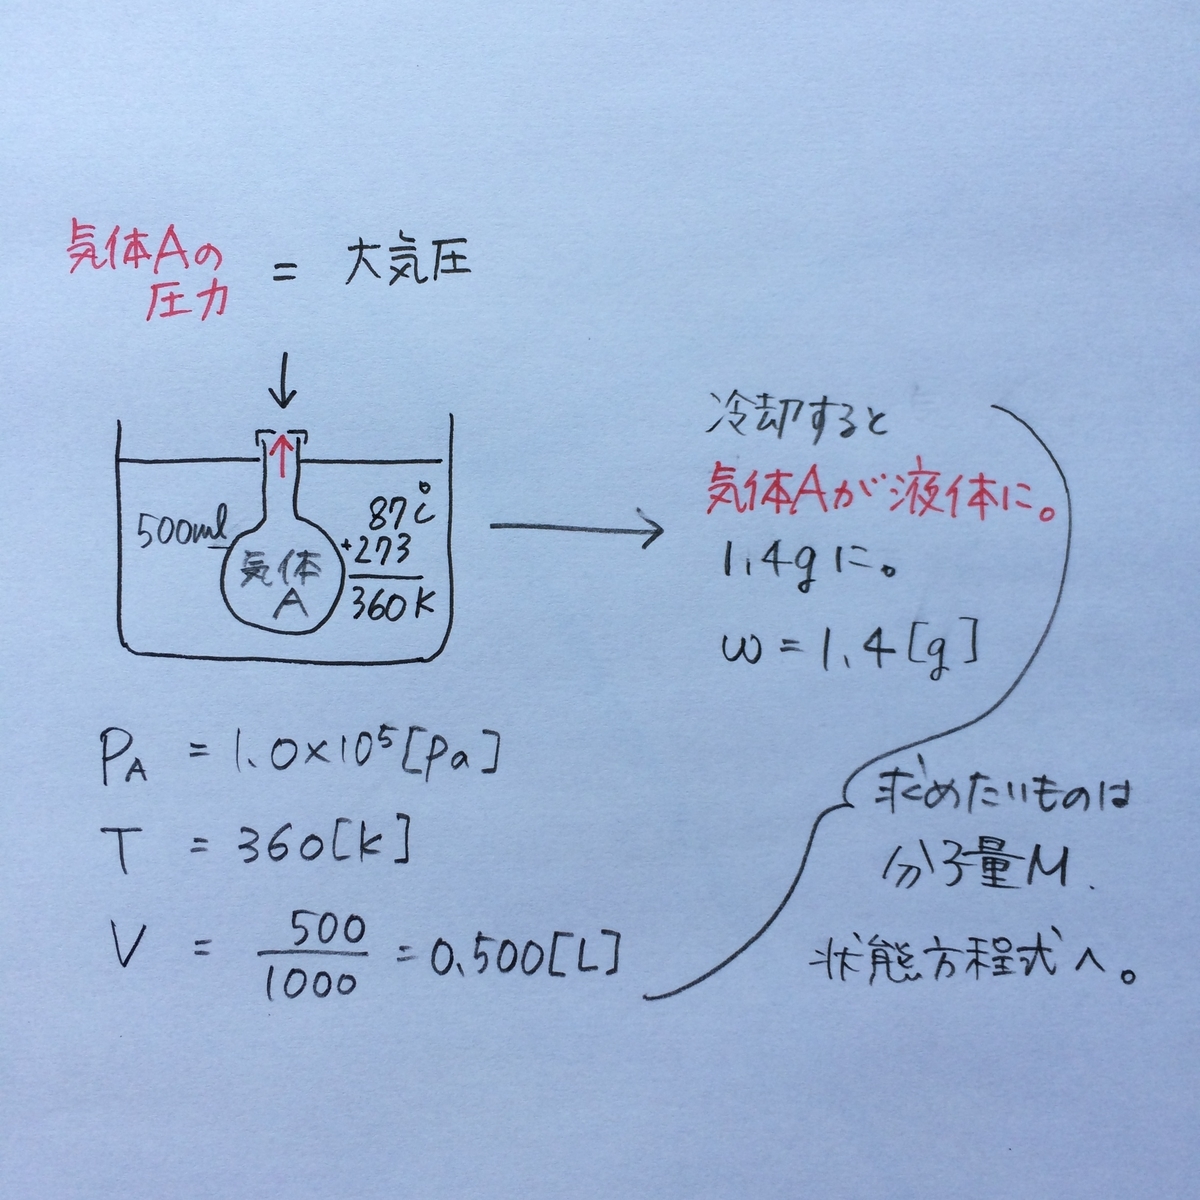 気体Aの
圧力
= 大気圧
500ml
気体
A
87℃
+273
360K
冷却すると
気体Aが液体に。
1.4gに。
w = 1.4[g]
PA = 1.0×10⁵[Pa]
T = 360[K]
V = 500/1000 = 0.500[L]
求めたいものは
分子量M.
状態方程式へ。